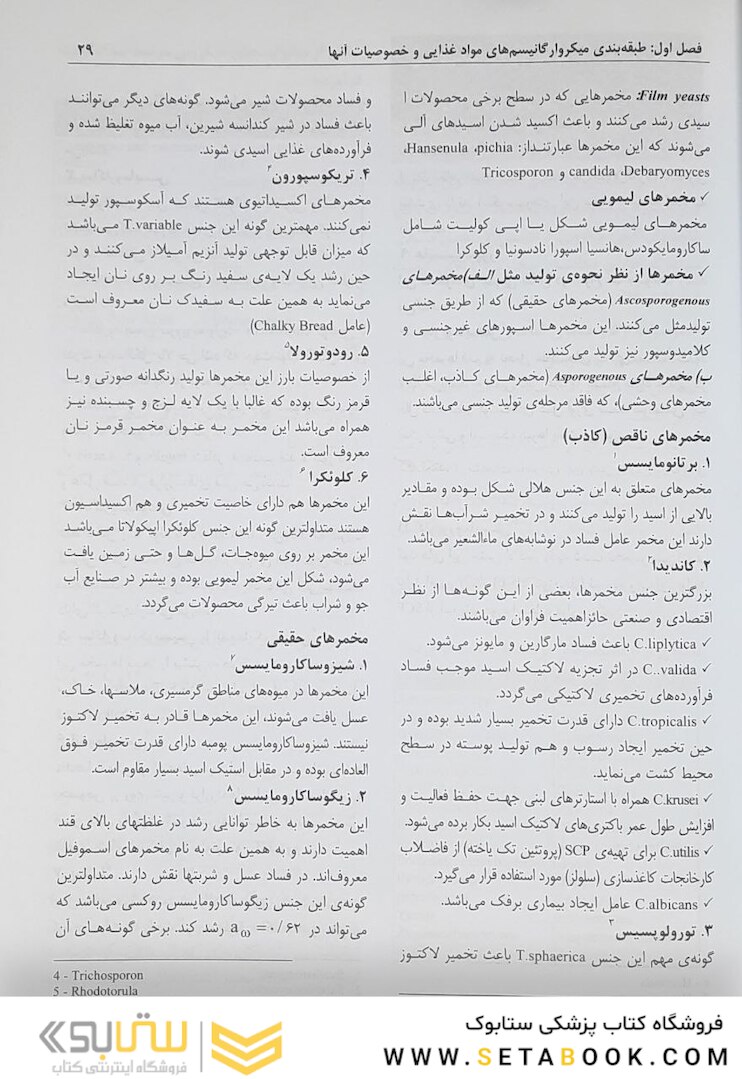 فصل اول: طبقه‌بندی میکروارگانیسم‌های مواد غذایی و خصوصیات آنها
۲۹
Film yeasts: مخمرهایی که در سطح برخی محصولات ا
سیدی رشد می‌کنند و باعث اکسید شدن اسیدهای آلی
می‌شوند که این مخمرها عبارتنداز: Hansenula ،pichia،
Debaryomyces، candida و Tricosporon
✓ مخمرهای لیمویی
مخمرهای لیمویی شکل یا اپی کولیت شامل
ساکارومایکودس،هانسیا اسپورا نادسونیا و کلوکرا
✓ مخمرها از نظر نحوه‌ی تولید مثل الف)مخمرهای
Ascosporogenous (مخمرهای حقیقی) که از طریق جنسی
تولیدمثل می‌کنند. این مخمرها اسپورهای غیرجنسی و
کلامیدوسپور نیز تولید می‌کنند.
ب) مخمرهای Asporogenous (مخمرهای کاذب، اغلب
مخمرهای وحشی)، که فاقد مرحله‌ی تولید جنسی می‌باشند.
مخمرهای ناقص (کاذب)
۱. برتانومایسس۱
مخمرهای متعلق به این جنس هلالی شکل بوده و مقادیر
بالایی از اسید را تولید می‌کنند و در تخمیر شراب‌ها نقش
دارند این مخمر عامل فساد در نوشابه‌های ماءالشعیر می‌باشد.
۲. کاندیدا۲
بزرگترین جنس مخمرها، بعضی از این گونه‌ها از نظر
اقتصادی و صنعتی حائزاهمیت فراوان می‌باشند.
✓ C.liplytica باعث فساد مارگارین و مایونز می‌شود.
✓ C..valida در اثر تجزیه لاکتیک اسید موجب فساد
فرآورده‌های تخمیری لاکتیکی می‌گردد.
✓ C.tropicalis دارای قدرت تخمیر بسیار شدید بوده و در
حین تخمیر ایجاد رسوب و هم تولید پوسته در سطح
محیط کشت می‌نماید.
✓ C.krusei همراه با استارترهای لبنی جهت حفظ فعالیت و
افزایش طول عمر باکتری‌های لاکتیک اسید بکار برده می‌شود.
✓ C.utilis برای تهیه‌ی SCP (پروتئین تک یاخته) از فاضلاب
کارخانجات کاغذسازی (سلولز) مورد استفاده قرار می‌گیرد.
✓ C.albicans عامل ایجاد بیماری برفک می‌باشد.
۳. تورولوپسیس۳
گونه‌ی مهم این جنس T.sphaerica باعث تخمیر لاکتوز
و فساد محصولات شیر می‌شود. گونه‌های دیگر می‌توانند
باعث فساد در شیر کندانسه شیرین، آب میوه تغلیظ شده و
فرآورده‌های غذایی اسیدی شوند.
۴. تریکوسپورون۴
مخمرهای اکسیداتیوی هستند که آسکوسپور تولید
نمی‌کنند. مهمترین گونه این جنس T.variable می‌باشد
که میزان قابل توجهی تولید آنزیم آمیلاز می‌کنند و در
حین رشد یک لایه‌ی سفید رنگ بر روی نان ایجاد
می‌نماید به همین علت به سفیدک نان معروف است
(عامل Chalky Bread)
۵. رودوتورولا۵
از خصوصیات بارز این مخمرها تولید رنگدانه صورتی و یا
قرمز رنگ بوده که غالبا با یک لایه لزج و چسبنده نیز
همراه می‌باشد این مخمر به عنوان مخمر قرمز نان
معروف است.
۶. کلوئکرا۶
این مخمرها هم دارای خاصیت تخمیری و هم اکسیداسیون
هستند متداولترین گونه این جنس کلوئکرا اپیکولاتا می‌باشد
این مخمر بر روی میوه‌جات، گل‌ها و حتی زمین یافت
می‌شود، شکل این مخمر لیمویی بوده و بیشتر در صنایع آب
جو و شراب باعث تیرگی محصولات می‌گردد.
مخمرهای حقیقی
۱. شیزوساکارومایسس۷
این مخمرها در میوه‌های مناطق گرمسیری، ملاسها، خاک،
عسل یافت می‌شوند، این مخمرها قادر به تخمیر لاکتوز
نیستند. شیزوساکارومایسس پومبه دارای قدرت تخمیر فوق
العاده‌ای بوده و در مقابل استیک اسید بسیار مقاوم است.
۲. زیگوساکارومایسس۸
این مخمرها به خاطر توانایی رشد در غلظتهای بالای قند
اهمیت دارند و به همین علت به نام مخمرهای اسموفیل
معروف‌اند. در فساد عسل و شربتها نقش دارند. متداولترین
گونه‌ی این جنس زیگوساکارومایسس روکسی می‌باشد که
می‌تواند در aω =۰/۶۲ رشد کند. برخی گونه‌های آن
4 - Trichosporon
5 - Rhodotorula
فروشگاه کتاب پزشکی ستابوک
WWW.SETABOOK.COM
ستابوک
فروشگاه اینترنتی کتاب